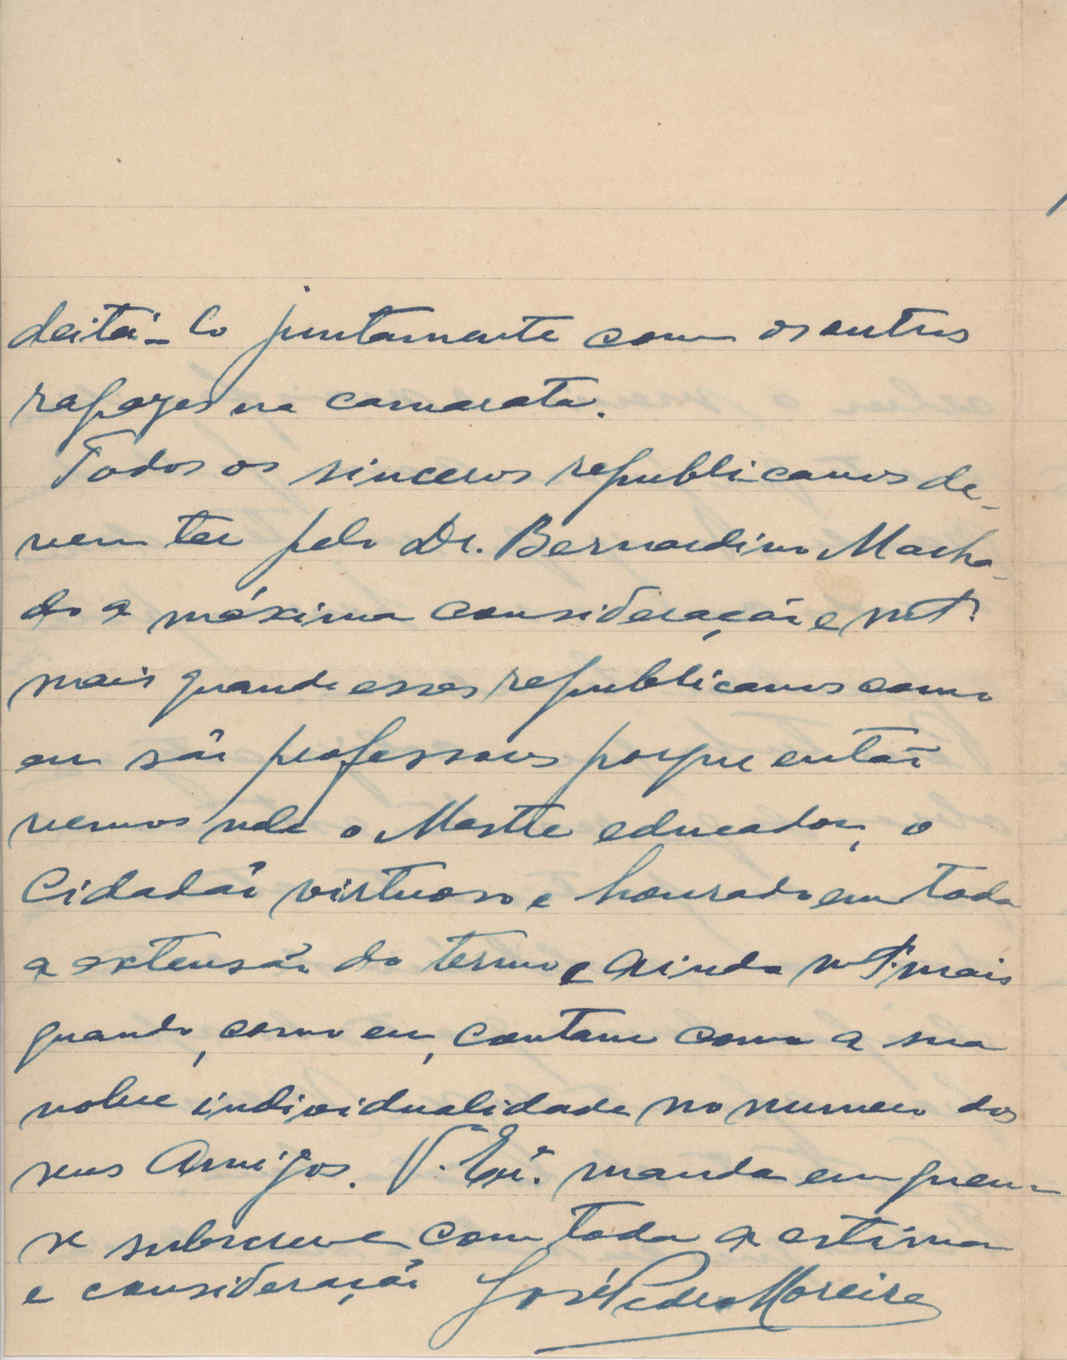 deitá-lo juntamente com os outros
rapazes na camarata.
Todos os sinceros republicanos de-
vem ter pelo Dr. Bernardino Macha-
do a máxima consideração e mt.º
mais quando esses republicanos como
eu são professores porque então
vemos nele o Mestre educador, o
Cidadão virtuoso e honrado em toda
a extensão do termo e ainda mt.º mais
quando, como eu, contam com a sua
nobre individualidade no numero dos
seus Amigos. V. Ex.ª manda em quem
se subscreve com toda a estima
e consideração José Pedro Moreira